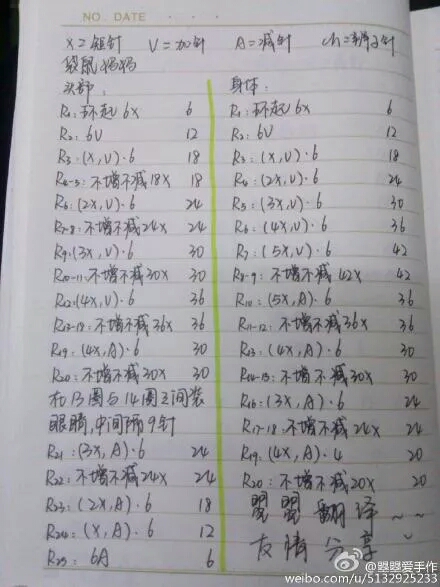 NO. DATE
X=短针 V=加针 A=减针 ch=辫子针
袋鼠妈妈
头部:
R1:环起6X 6
R2:6V 12
R3:(X,V)·6 18
R4-5:不增不减18X 18
R6:(2X,V)·6 24
R7-8:不增不减24X 24
R9:(3X,V)·6 30
R10-11:不增不减30X 30
R12:(4X,V)·6 36
R13-18:不增不减36X 36
R19:(4X,A)·6 30
R20:不增不减30X 30
在13圈与14圈之间装
眼睛,中间隔9针
R21:(3X,A)·6 24
R22:不增不减24X 24
R23:(2X,A)·6 18
R24:(X,A)·6 12
R25:6A 6
身体:
R1:环起6X 6
R2:6V 12
R3:(X,V)·6 18
R4:(2X,V)·6 24
R5:(3X,V)·6 30
R6:(4X,V)·6 36
R7:(5X,V)·6 42
R8-9:不增不减42X 42
R10:(5X,A)·6 36
R11-12:不增不减36X 36
R13:(4X,A)·6 30
R14-15:不增不减30X 30
R16:(3X,A)·6 24
R17-18:不增不减24X 24
R19:(4X,A)·4 20
R20:不增不减20X 20
曌曌翻译~~
友情分享
@曌曌爱手作
weibo.com/u/5132925233